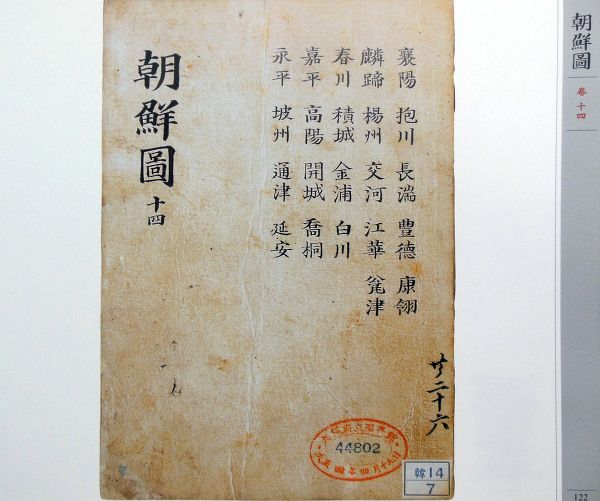 朝鮮圖
卷十四
襄陽 抱川 長湍 豊德 康翎
麟蹄 楊州 交河 江華 瓮津
春川 積城 金浦 白川
嘉平 高陽 開城 喬桐
永平 坡州 通津 延安
朝鮮圖 十四
二十六
44802
韓14
7
122